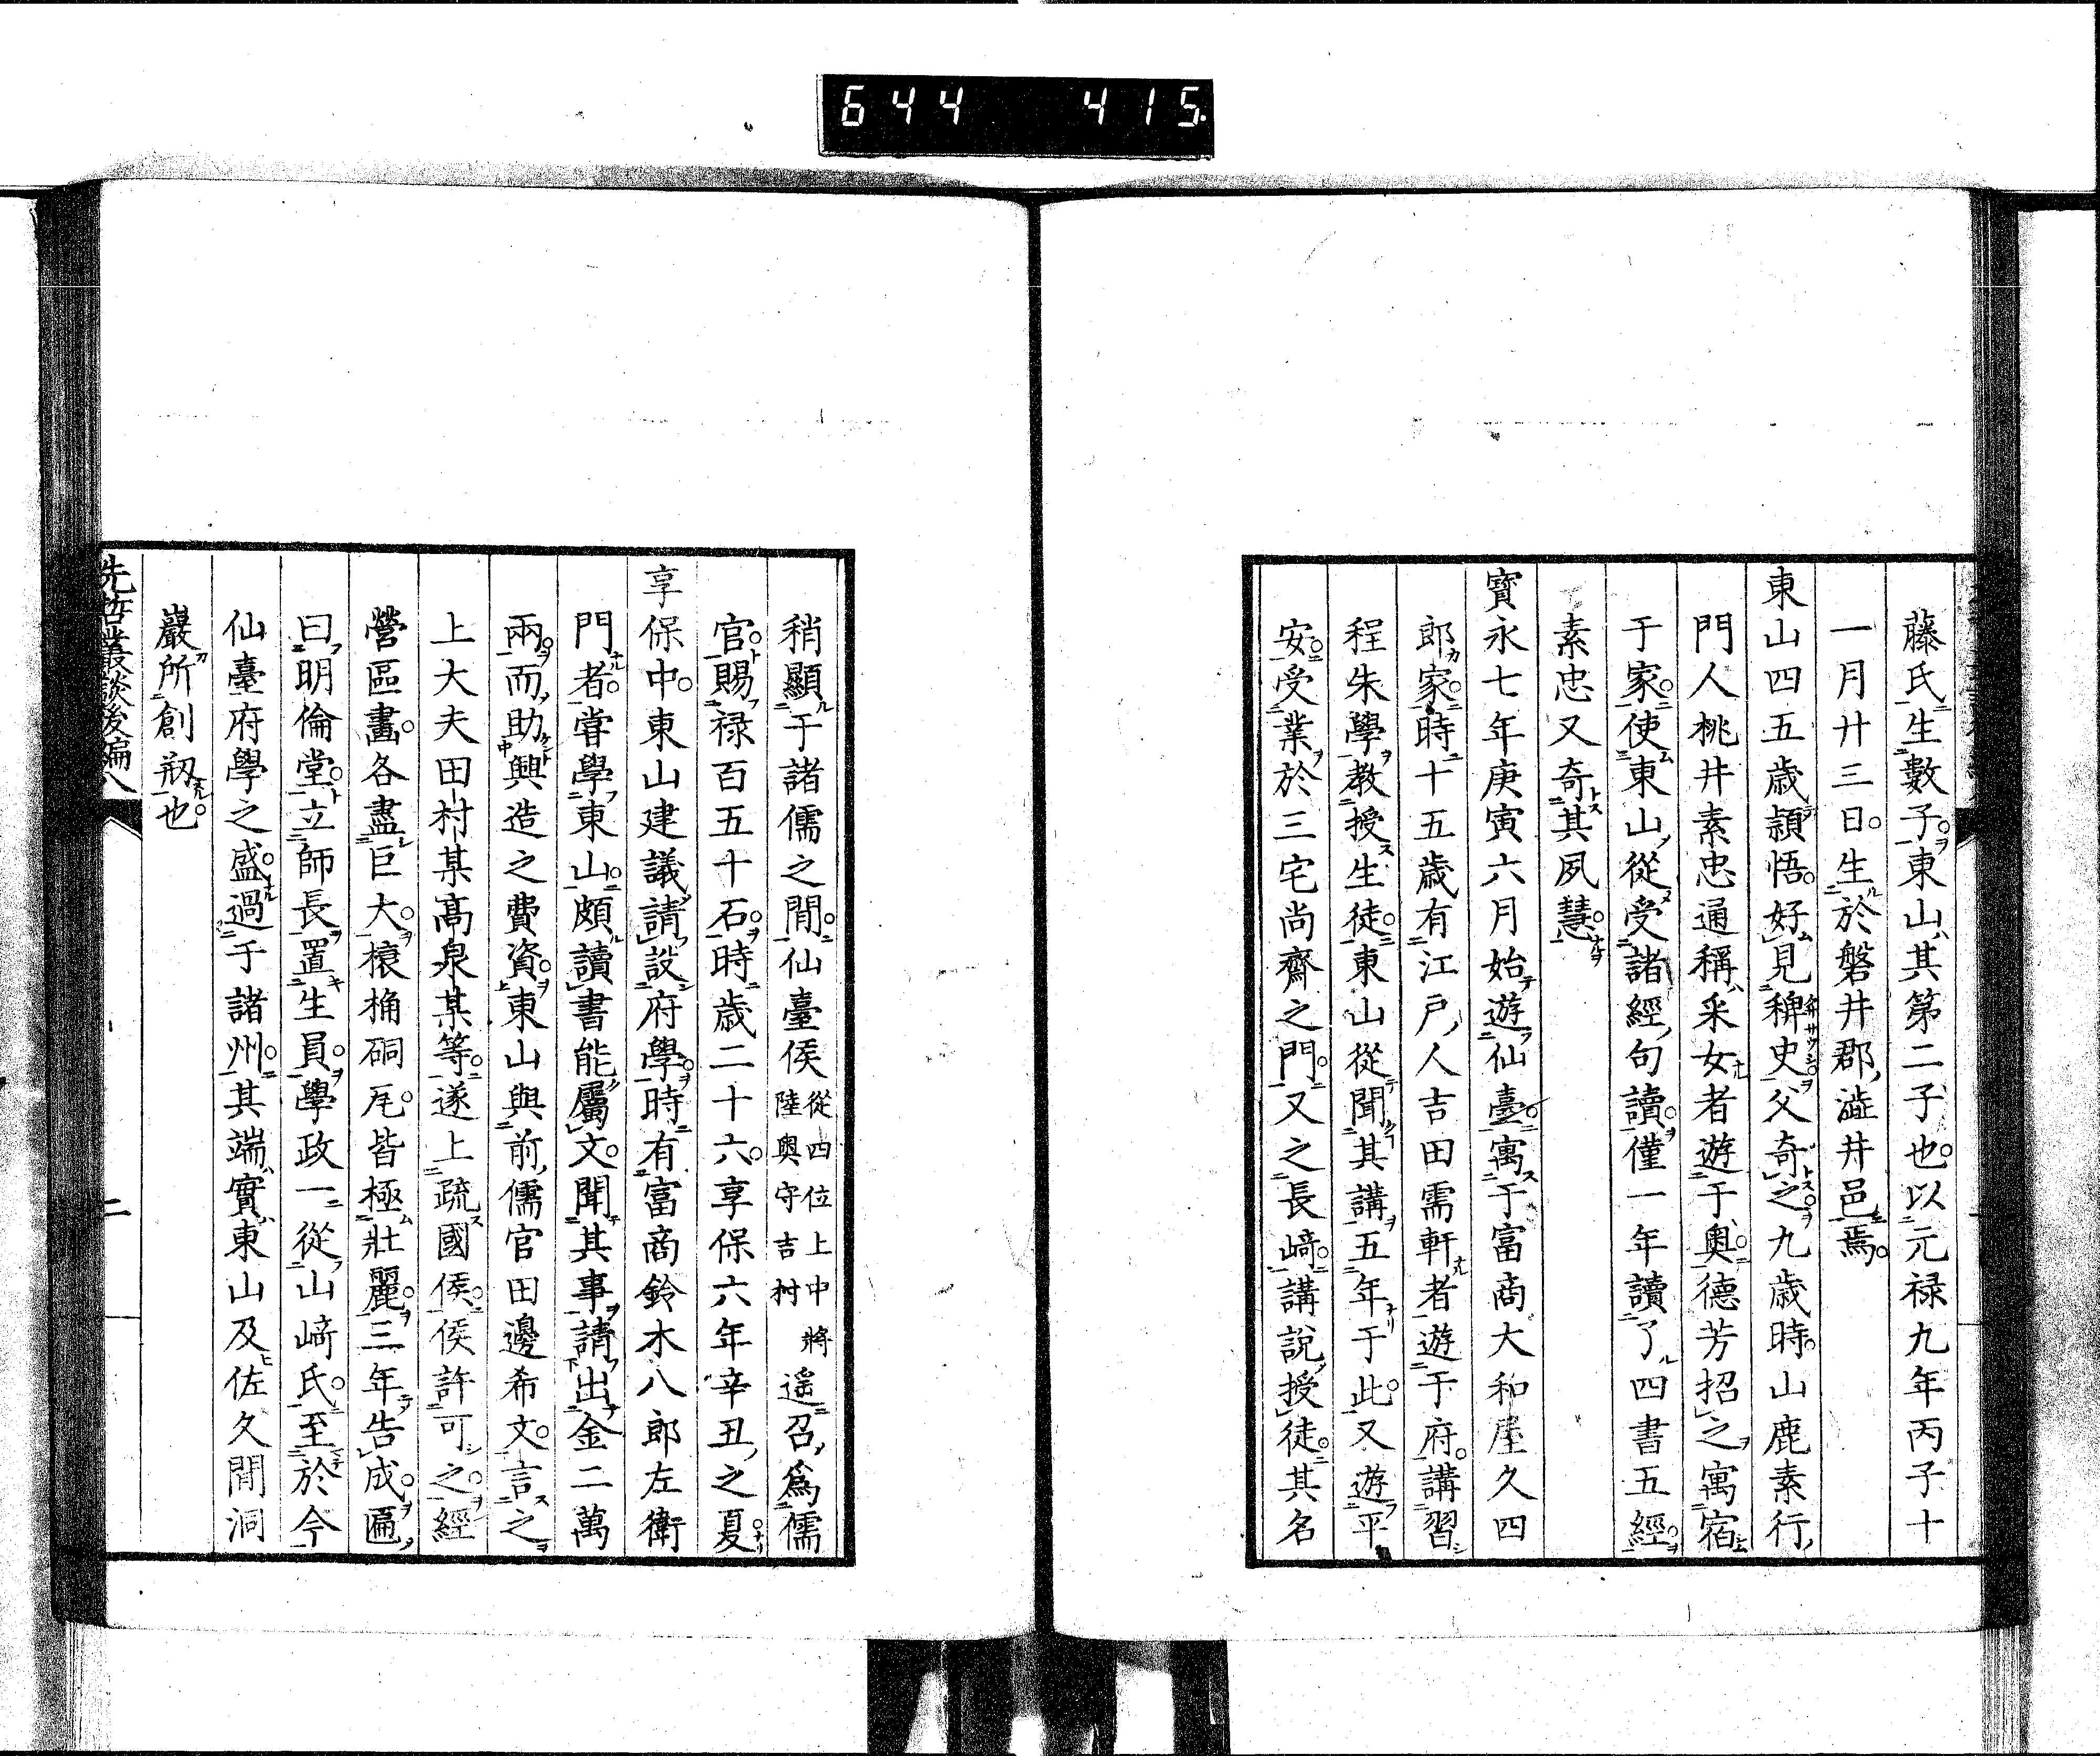 644 415.
藤氏生數子東山其第二子也以元禄九年丙子十
一月廿三日生於磐井郡澁井邑焉
東山四五歳頴悟好見稗史父奇之九歳時山鹿素行
門人桃井素忠通稱釆女者遊于奥德芳招之寓宿
于家使東山從受諸經句讀僅一年讀了四書五經
素忠又奇其夙慧
寳永七年庚寅六月始遊仙臺寓于富商大和屋久四
郎家時十五歳有江戸人吉田需軒者遊于府講習
程朱學教授生徒東山從聞其講五年于此又遊平
安受業於三宅尚齋之門又之長﨑講説授徒其名
稍顯于諸儒之間仙臺侯從四位上中將陸奥守吉村遥召爲儒
官賜禄百五十石時歳二十六享保六年辛丑之夏
享保中東山建議請設府學時有富商鈴木八郎左衛
門者甞學東山頗讀書能屬文聞其事請出金二萬
兩而助興造之費資東山與前儒官田邊希文言之
上大夫田村某髙泉某等遂上疏國侯侯許可之經
營區畫各盡巨大榱桷硐瓦皆極壯麗三年告成匾
曰明倫堂立師長置生員學政一從山﨑氏至於今
仙臺府學之盛過于諸州其端實東山及佐久間洞
巖所創剏也
先哲叢談後編八
二